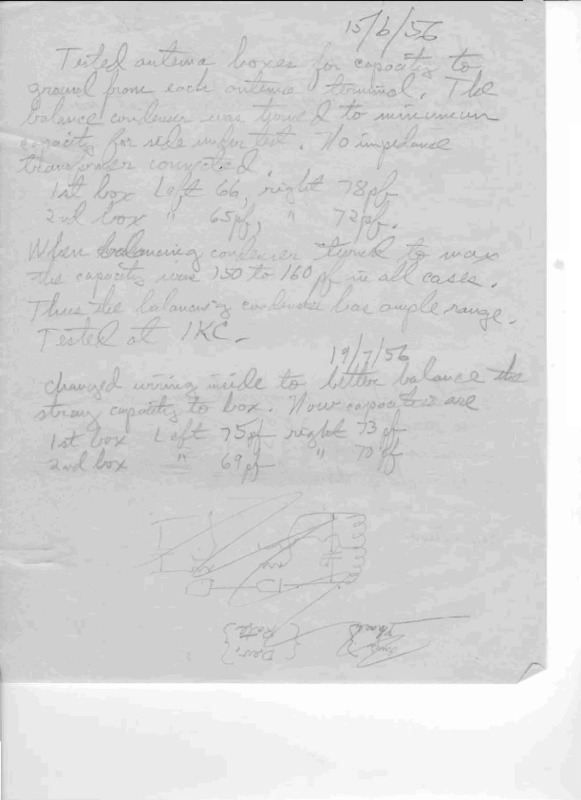 15/6/56
Tested antenna boxes for capacity to
ground from each antenna terminal. The
balance condenser was turned to minimum
capacity for side under test. No impedance
transformer connected.
1st box Left 66, right 78pf
2nd box " 65pf, " 72pf.
When balancing condenser turned to max
the capacity was 150 to 160 pf in all cases.
Thus the balancing condenser has ample range.
Tested at 1KC.
19/7/56
changed wiring inside to better balance the
stray capacity to box. Now capacities are
1st box Left 75pf right 73 pf
2nd box " 69pf " 70pf